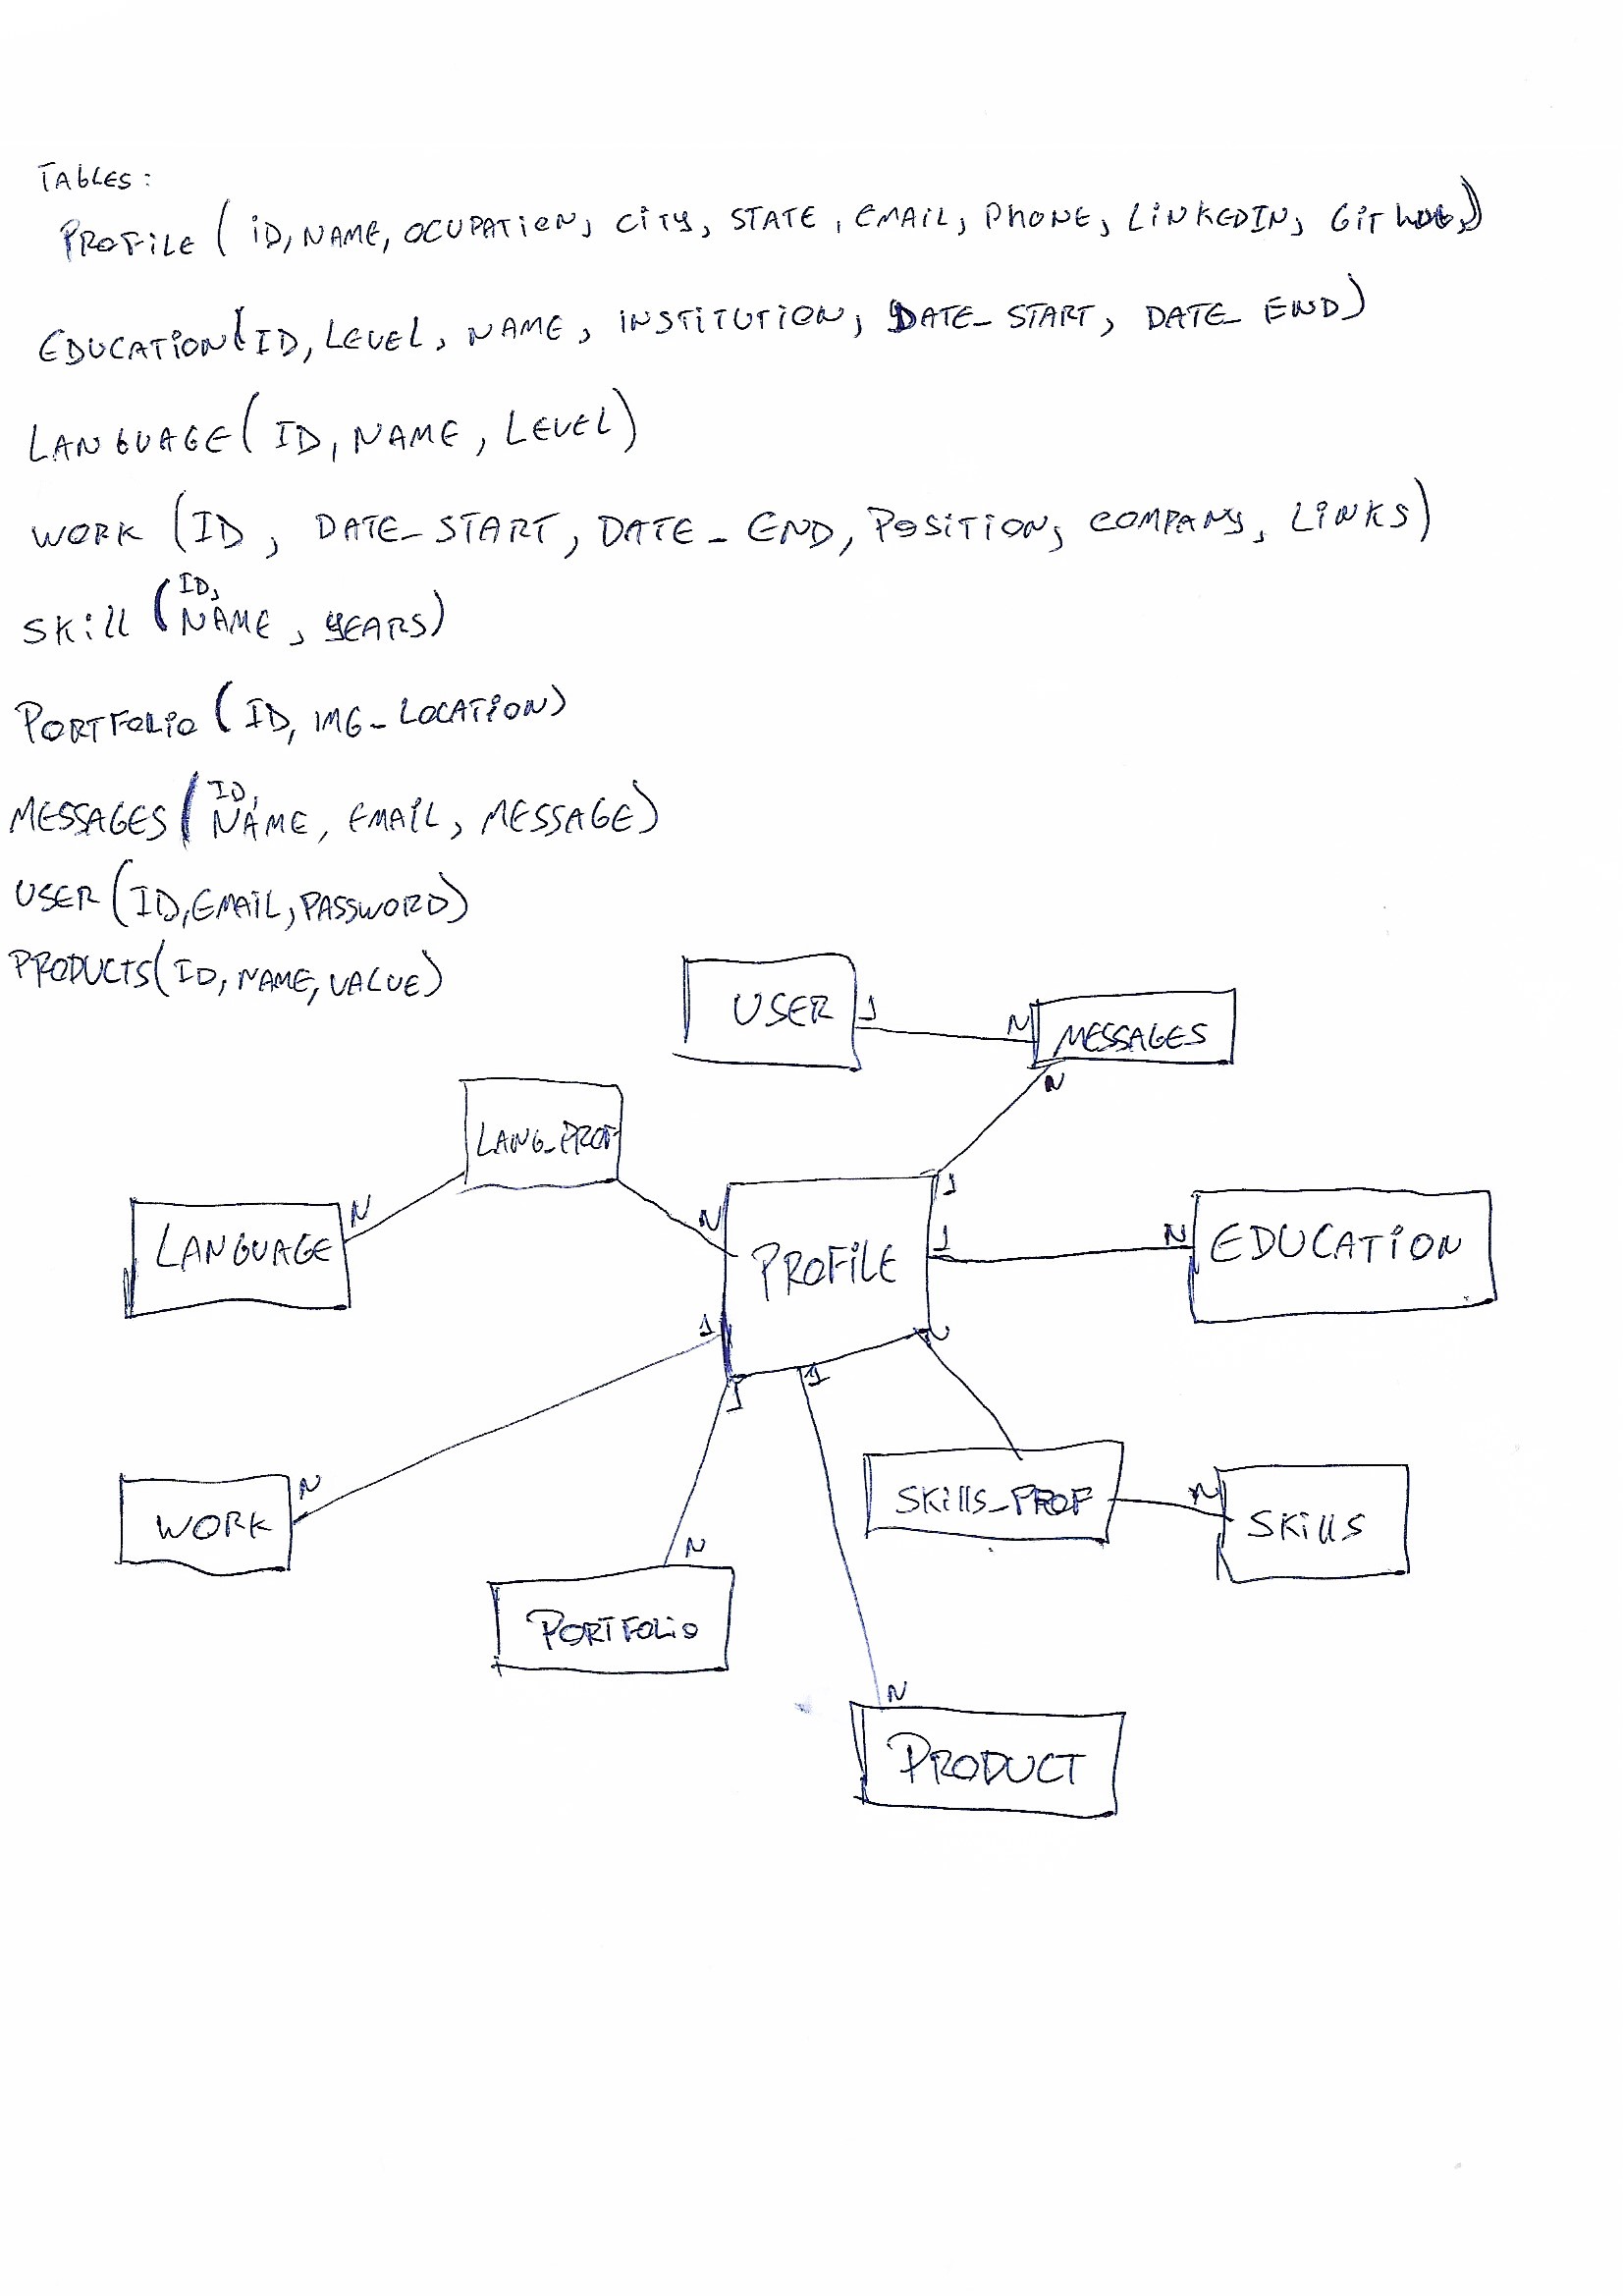 TABLES:
PROFILE (ID, NAME, OCUPATION, CITY, STATE, EMAIL, PHONE, LINKEDIN, GITHUB,)
EDUCATION(ID, LEVEL, NAME, INSTITUTION, DATE_START, DATE_END)
LANGUAGE(ID, NAME, LEVEL)
WORK (ID, DATE_START, DATE_END, POSITION, COMPANY, LINKS)
SKILL (ID, NAME, YEARS)
PORTFOLIO (ID, IMG_LOCATION)
MESSAGES (ID, NAME, EMAIL, MESSAGE)
USER (ID, EMAIL, PASSWORD)
PRODUCTS(ID, NAME, VALUE)
USER 1 N MESSAGES
N
LANG_PROF
1
LANGUAGE N
N PROFILE 1
N EDUCATION
1
1
1
N
WORK N
SKILLS_PROF
N SKILLS
N
PORTFOLIO
N
PRODUCT